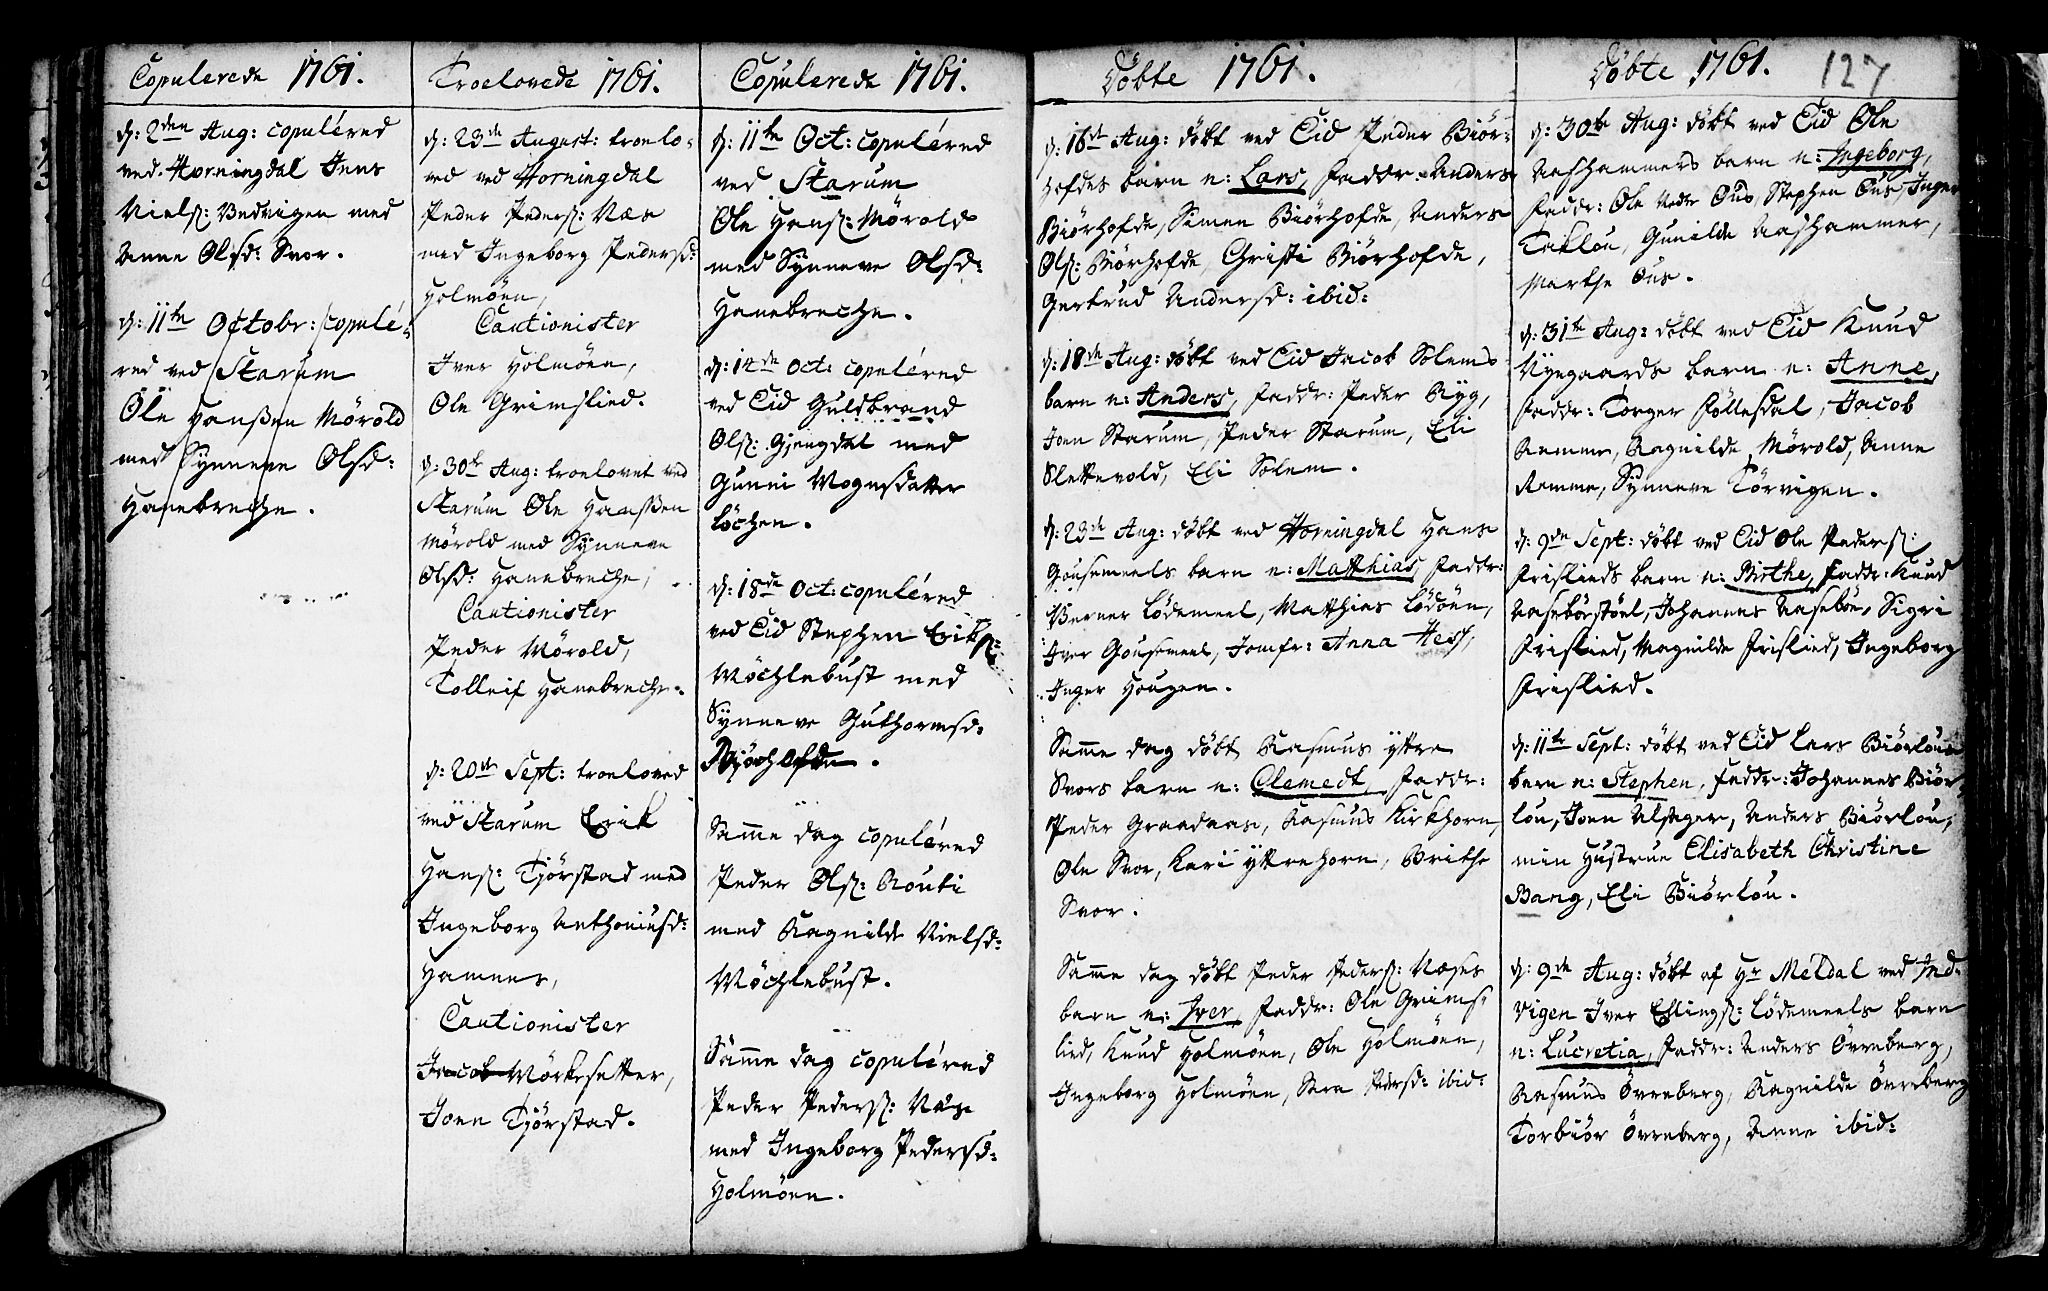 Copulerede 1761.
d: 2den Aug: copuléred
ved Horningdal Jens
Niels: Vedvigen med
Anne Olsd: Svor.
d: 11te Octobr: copulé-
red ved Starum
Ole Hanßen Mörold
med Synneve Olsd:
Hanebreche.
Troelovede 1761.
d: 23de August: troelo-
ved ved Horningdal
Peder Peders: Næs
med Ingeborg Pedersd:
Holmöen,
Cautionister
Iver Holmöen,
Ole Grimslied.
d: 30te Aug: troelovet ved
Starum Ole Hanßen
Mörold med Synneve
Olsd: Hanebreche,
Cautionister
Peder Mörold,
Tolleif Hanebreche.
d: 20de Sept: troeloved
ved Starum Erik
Hans: Tjörstad med
Ingeborg Anthoniusd:
Hamnes,
Cautionister
Jacob Mörkesetter,
Joen Tjörstad.
Copulerede 1761.
d: 11te Oct: copuléred
ved Starum
Ole Hans: Mörold
med Synneve Olsd:
Hanebreche.
d: 14de Oct: copuléred
ved Eid Guldbrand
Ols: Gjengdal med
Gunni Mognsdatter
Löchen.
d: 18de Oct: copuléred
ved Eid Stephen Eriks:
Möchlebust med
Synneve Guthormsd:
Samme dag copuléred
Peder Ols: Routi
med Ragnilde Nielsd:
Möchlebust.
Samme dag copuléred
Peder Peders: Næs
med Ingeborg Pedersd:
Holmöen.
Döbte 1761.
d: 16de Aug: döbt ved Eid Peder Biör-
hofdes barn n: Lars, Faddr: Anders
Biörhofde, Simen Biörhofde, Anders
Ols: Biörhofde, Christi Biörhofde,
Gertrud Andersd: ibid:
d: 18de Aug: döbt ved Eid Jacob Solems
barn n: Anders, Faddr: Peder Ryg,
Joen Starum, Peder Starum, Eli
Slettevold, Eli Solem.
d: 23de Aug: döbt ved Horningdal Hans
Gousemeels barn n: Matthias, Faddr:
Verner Lödemeel, Matthias Lödöen,
Iver Gousemeel, Jomfr: Anna Hess,
Inger Hougen.
Samme dag döbt Rasmus yttre
Svors barn n: Clemedt, Faddr:
Peder Graadaas, Rasmus Kirkhorn,
Ole Svor, Kari yttrehorn, Brithe
Svor.
Samme dag döbt Peder Peders: Næses
barn n: Iver, Faddr: Ole Grims-
lied, Knud Holmöen, Ole Holmöen,
Ingeborg Holmöen, Sara Pedersd: ibid:
Döbte 1761. 127
d: 30te Aug: döbt ved Eid Ole
Aashammers barn n: Ingeborg,
Faddr: Ole Ous, Stephen Ous, Inger
Taklou, Gunilde Aashammer,
Marthe Ous.
d: 31te Aug: döbt ved Eid Knud
Nyegaards barn n: Anne,
Faddr: Torger Föllesdal, Jacob
Remme, Ragnilde Mörold, Anne
Remme, Synneve Törvigen.
d: 9de Sept: döbt ved Eid Ole Peders:
Frislieds barn n: Birthe, Faddr: Knud
Aasebörstöel, Johannes Aaseböe, Sigri
Frislied, Magnilde Frislied, Ingeborg
Frislied.
d: 11te Sept: döbt ved Eid Lars Biörlous
barn n: Stephen, Faddr: Johannes Biör-
lou, Joen Alsager, Anders Biörlou,
min Hustrue Elisabeth Christine
Bang, Eli Biörlou.
d: 9de Aug: döbt af Hr Meldal ved Ind-
vigen Iver Ellings: Lödemeels barn
n: Lucretia, Faddr: Anders Övreberg,
Rasmus Övreberg, Ragnilde Övreberg
Torbiör Övreberg, Anne ibid: